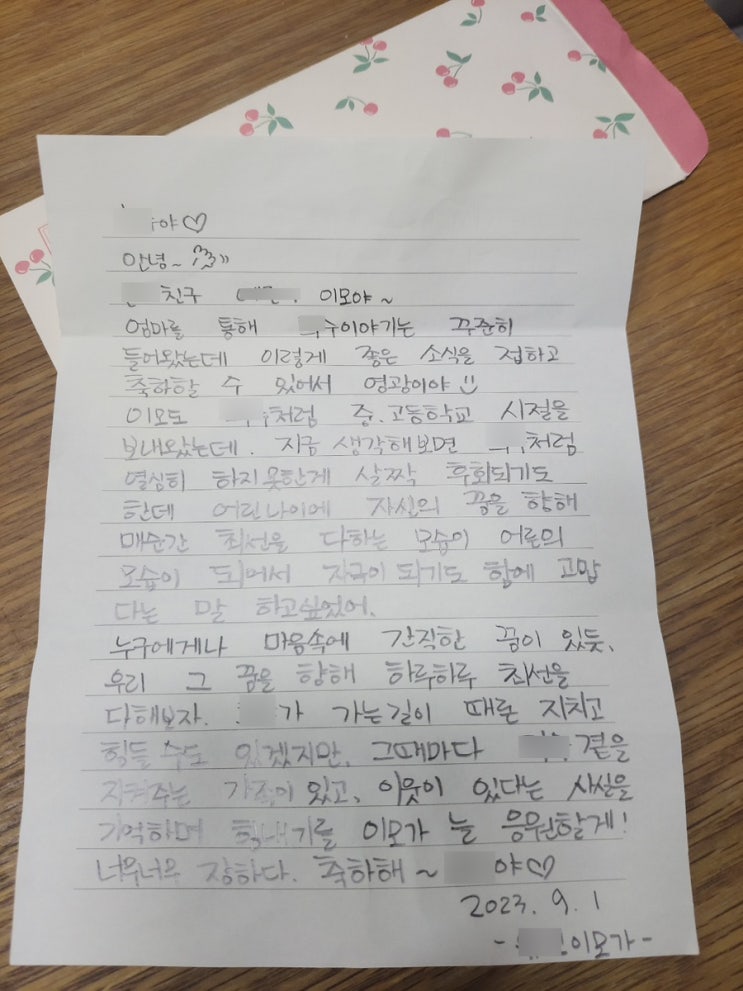 야♡
안녕~
친구 이모야~
엄마를 통해 수이야기는 꾸준히
들어왔는데 이렇게 좋은 소식을 접하고
축하할 수 있어서 영광이야
이모도 처럼 중.고등학교 시절을
보내왔는데. 지금 생각해보면 처럼
열심히 하지못한게 살짝 후회되기도
한데 어린나이에 자신의 꿈을 향해
매순간 최선을 다하는 모습이 어른의
모습이 되어서 자극이 되기도 함에 고맙
다는 말 하고싶었어.
누구에게나 마음속에 간직한 꿈이 있듯,
우리 그 꿈을 향해 하루하루 최선을
다해보자. 가 가는길이 때론 지치고
힘들 수도 있겠지만, 그때마다 곁을
지켜주는 가족이 있고, 이웃이 있다는 사실을
기억하며 힘내기를 이모가 늘 응원할게!
너무너무 장하다. 축하해~ 야♡
2023. 9. 1
- 이모가-